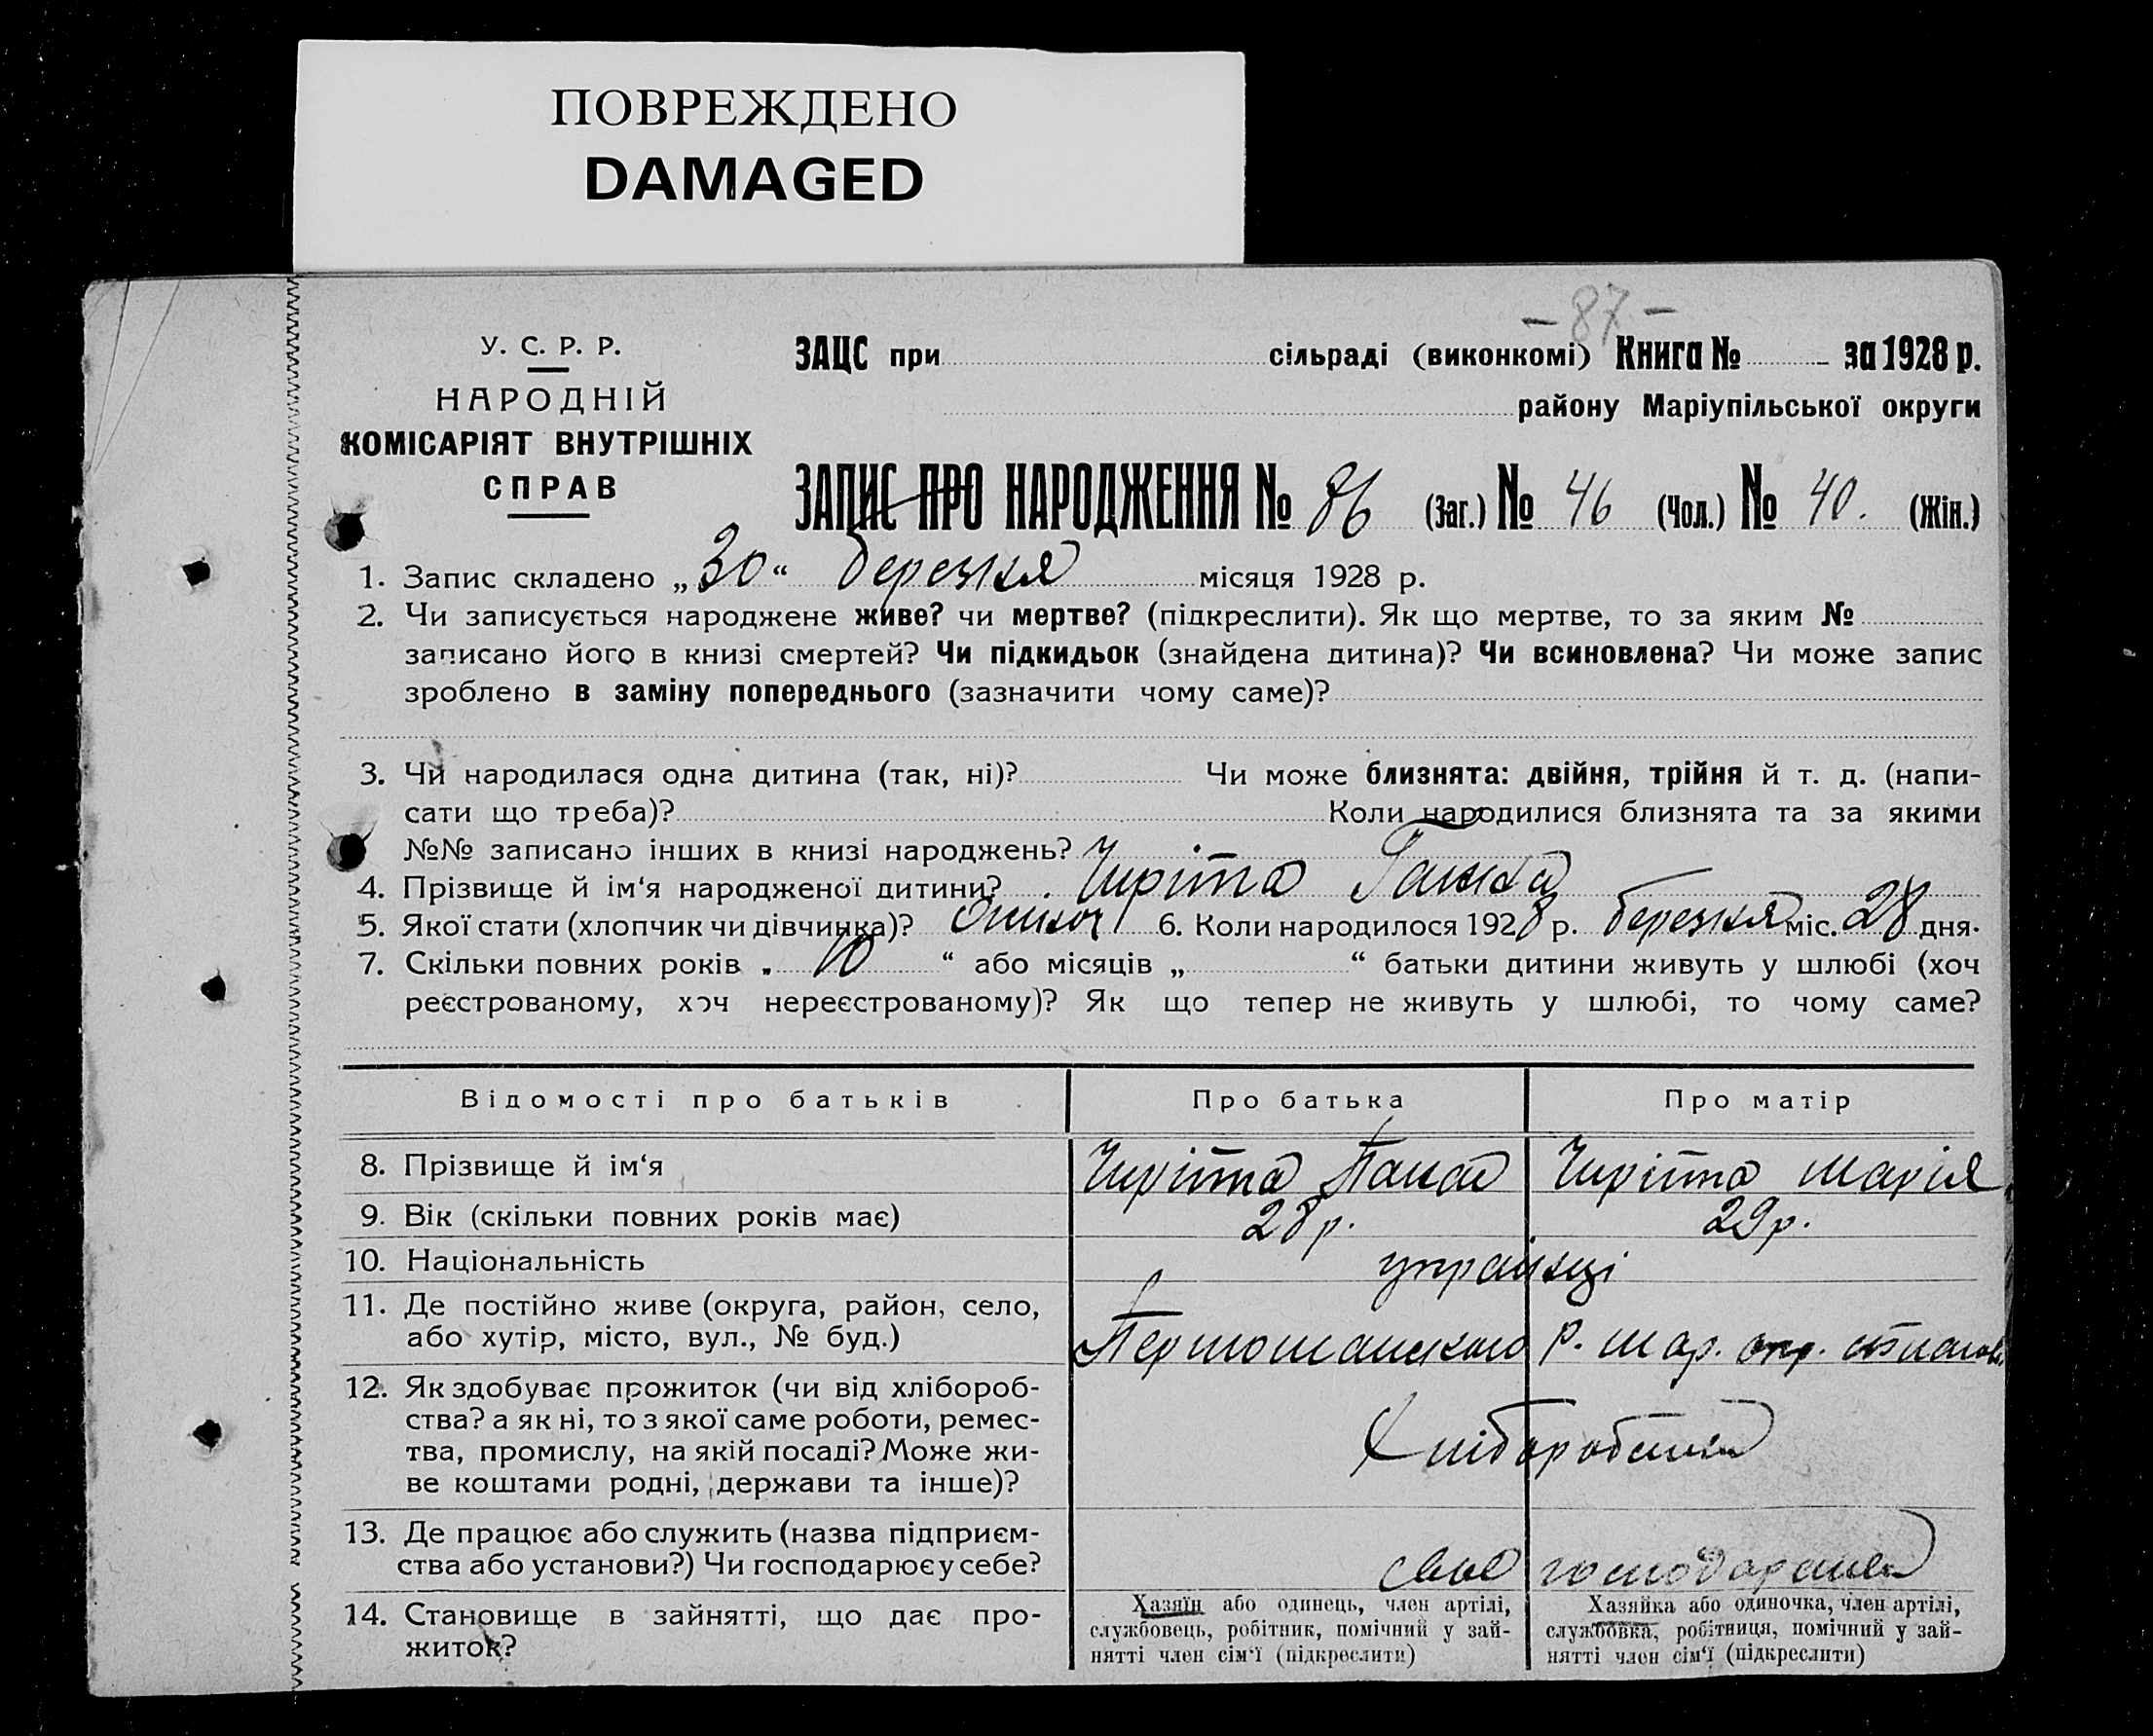 ПОВРЕЖДЕНО
DAMAGED
- 87 -
У. С. Р. Р.
НАРОДНІЙ
КОМІСАРІЯТ ВНУТРІШНІХ
СПРАВ
ЗАЦС при сільраді (виконкомі) Книга № за 1928 р.
району Маріупільської округи
ЗАПИС ПРО НАРОДЖЕННЯ № 86 (Заг.) № 46 (Чол.) № 40. (Жін.)
1. Запис складено „30“ березня місяця 1928 р.
2. Чи записується народжене живе? чи мертве? (підкреслити). Як що мертве, то за яким №
записано його в книзі смертей? Чи підкидьок (знайдена дитина)? Чи всиновлена? Чи може запис
зроблено в заміну попереднього (зазначити чому саме)?
3. Чи народилася одна дитина (так, ні)? Чи може близнята: двійня, трійня й т. д. (напи-
сати що треба)? Коли народилися близнята та за якими
№№ записано інших в книзі народжень?
4. Прізвище й ім‘я народженої дитини?
5. Якої стати (хлопчик чи дівчинка)? 6. Коли народилося 1928 р. березня міс. 28 дня.
7. Скільки повних років „ 10 “ або місяців „ “ батьки дитини живуть у шлюбі (хоч
реєстрованому, хоч нереєстрованому)? Як що тепер не живуть у шлюбі, то чому саме?
Відомості про батьків Про батька Про матір
8. Прізвище й ім‘я Чиріта Панас Чиріта Марія
9. Вік (скільки повних років має) 28 р. 29 р.
10. Національність українці
11. Де постійно живе (округа, район, село,
або хутір, місто, вул., № буд.) р. Мар. окр.
12. Як здобуває прожиток (чи від хлібороб-
ства? а як ні, то з якої саме роботи, ремес-
тва, промислу, на якій посаді? Може жи-
ве коштами родні, держави та інше)?
13. Де працює або служить (назва підприєм-
ства або установи?) Чи господарює у себе? своє
14. Становище в зайнятті, що дає про-
житок?
Хазяїн або одинець, член артілі,
службовець, робітник, помічний у зай-
нятті член сім‘ї (підкреслити)
Хазяйка або одиночка, член артілі,
службовка, робітниця, помічний у зай-
нятті член сім‘ї (підкреслити)